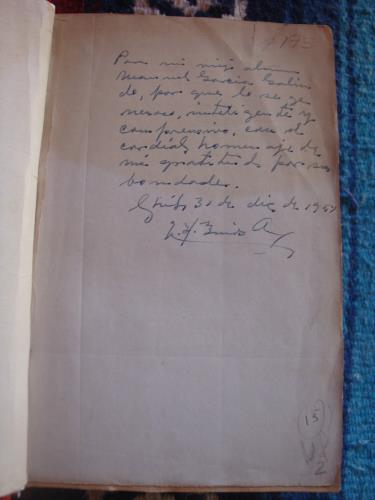 Para mi viejo alumno
Manuel García Galin
do, por que le sé ge
neroso, inteligente y
comprensivo, con el
cordial homenaje de
mi gratitud por sus
bondades.
31 de dic de 19
15
2